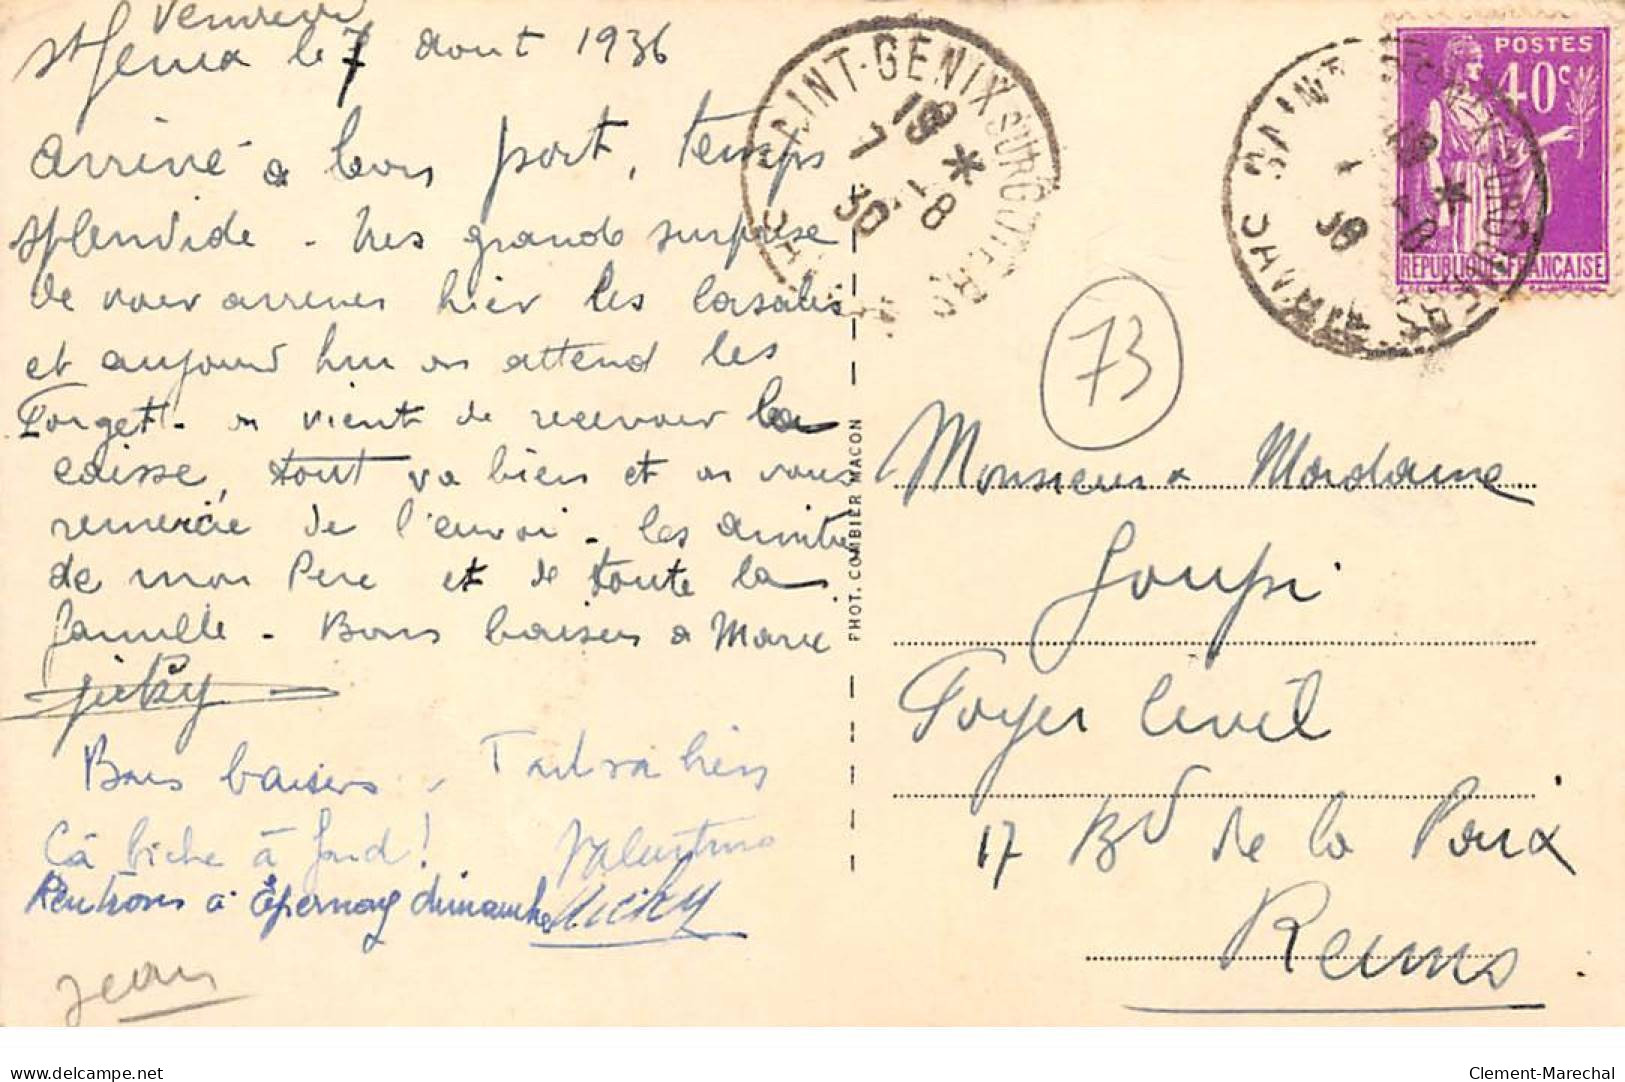 Vendredi
St Genix le 7 aout 1936
arrivé a bon port, temps
splendide - tres grande surprise
de voir arriver hier les Casalis
et aujourd hui on attend les
Forget - on vient de recevoir la
caisse, tout va bien et on vous
remercie de l'envoi - les amitiés
de mon Pere et de toute la
famille - Bons baisers a
Bons baisers - Tout va bien
Cà biche à fond! Valentino
Rentrons à Épernay dimanche
Jean
SAINT-GENIX SUR GUIERS
19 *
7 - 8
PHOT. COMBIER MACON
73
POSTES
40c
REPUBLIQUE FRANCAISE
Monsieur & Madame
Goupi
Foyer Civil
17 Bd de la Paix
Reims
delcampe.net
Clement-Marechal